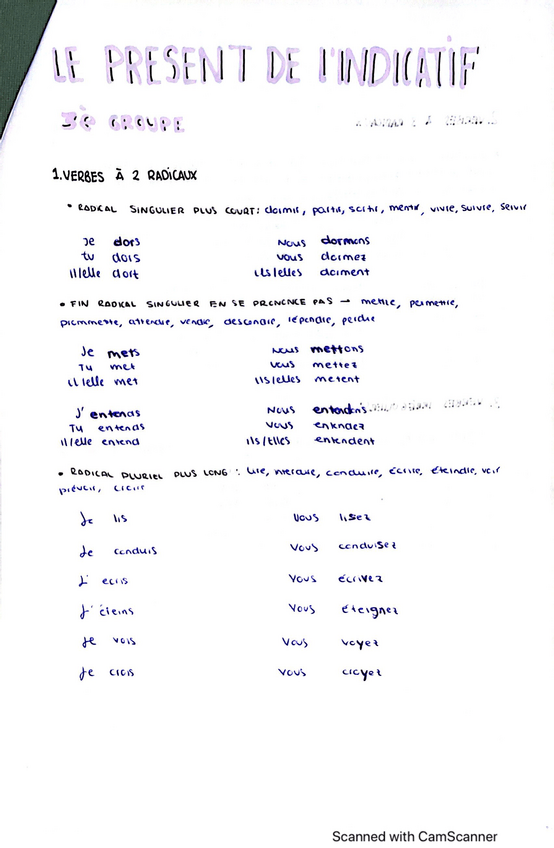 LE PRESENT DE L'INDICATIF
3è GROUPE
1.VERBES À 2 RADICAUX
• RADICAL SINGULIER PLUS COURT: dormir, partir, sortir, mentir, vivre, suivre, servir
Je dors Nous dormons
tu dors vous dormez
il/elle dort ils/elles dorment
• FIN RADICAL SINGULIER EN SE PRONONCE PAS → mettre, permettre,
prommette, attendre, vendre, descendre, répondre, perdre
Je mets Nous mettons
Tu met vous mettez
il/elle met ils/elles metent
J' entends Nous entendons
Tu entends Vous entendez
il/elle entend ils/elles entendent
• RADICAL PLURIEL PLUS LONG : lire, conduire, écrire, éteindre, voir
prévoir, croire
Je lis Vous lisez
Je conduis Vous conduisez
J' ecris Vous écrivez
J' éteins Vous éteignez
Je vois Vous voyez
Je crois Vous croyez
Scanned with CamScanner